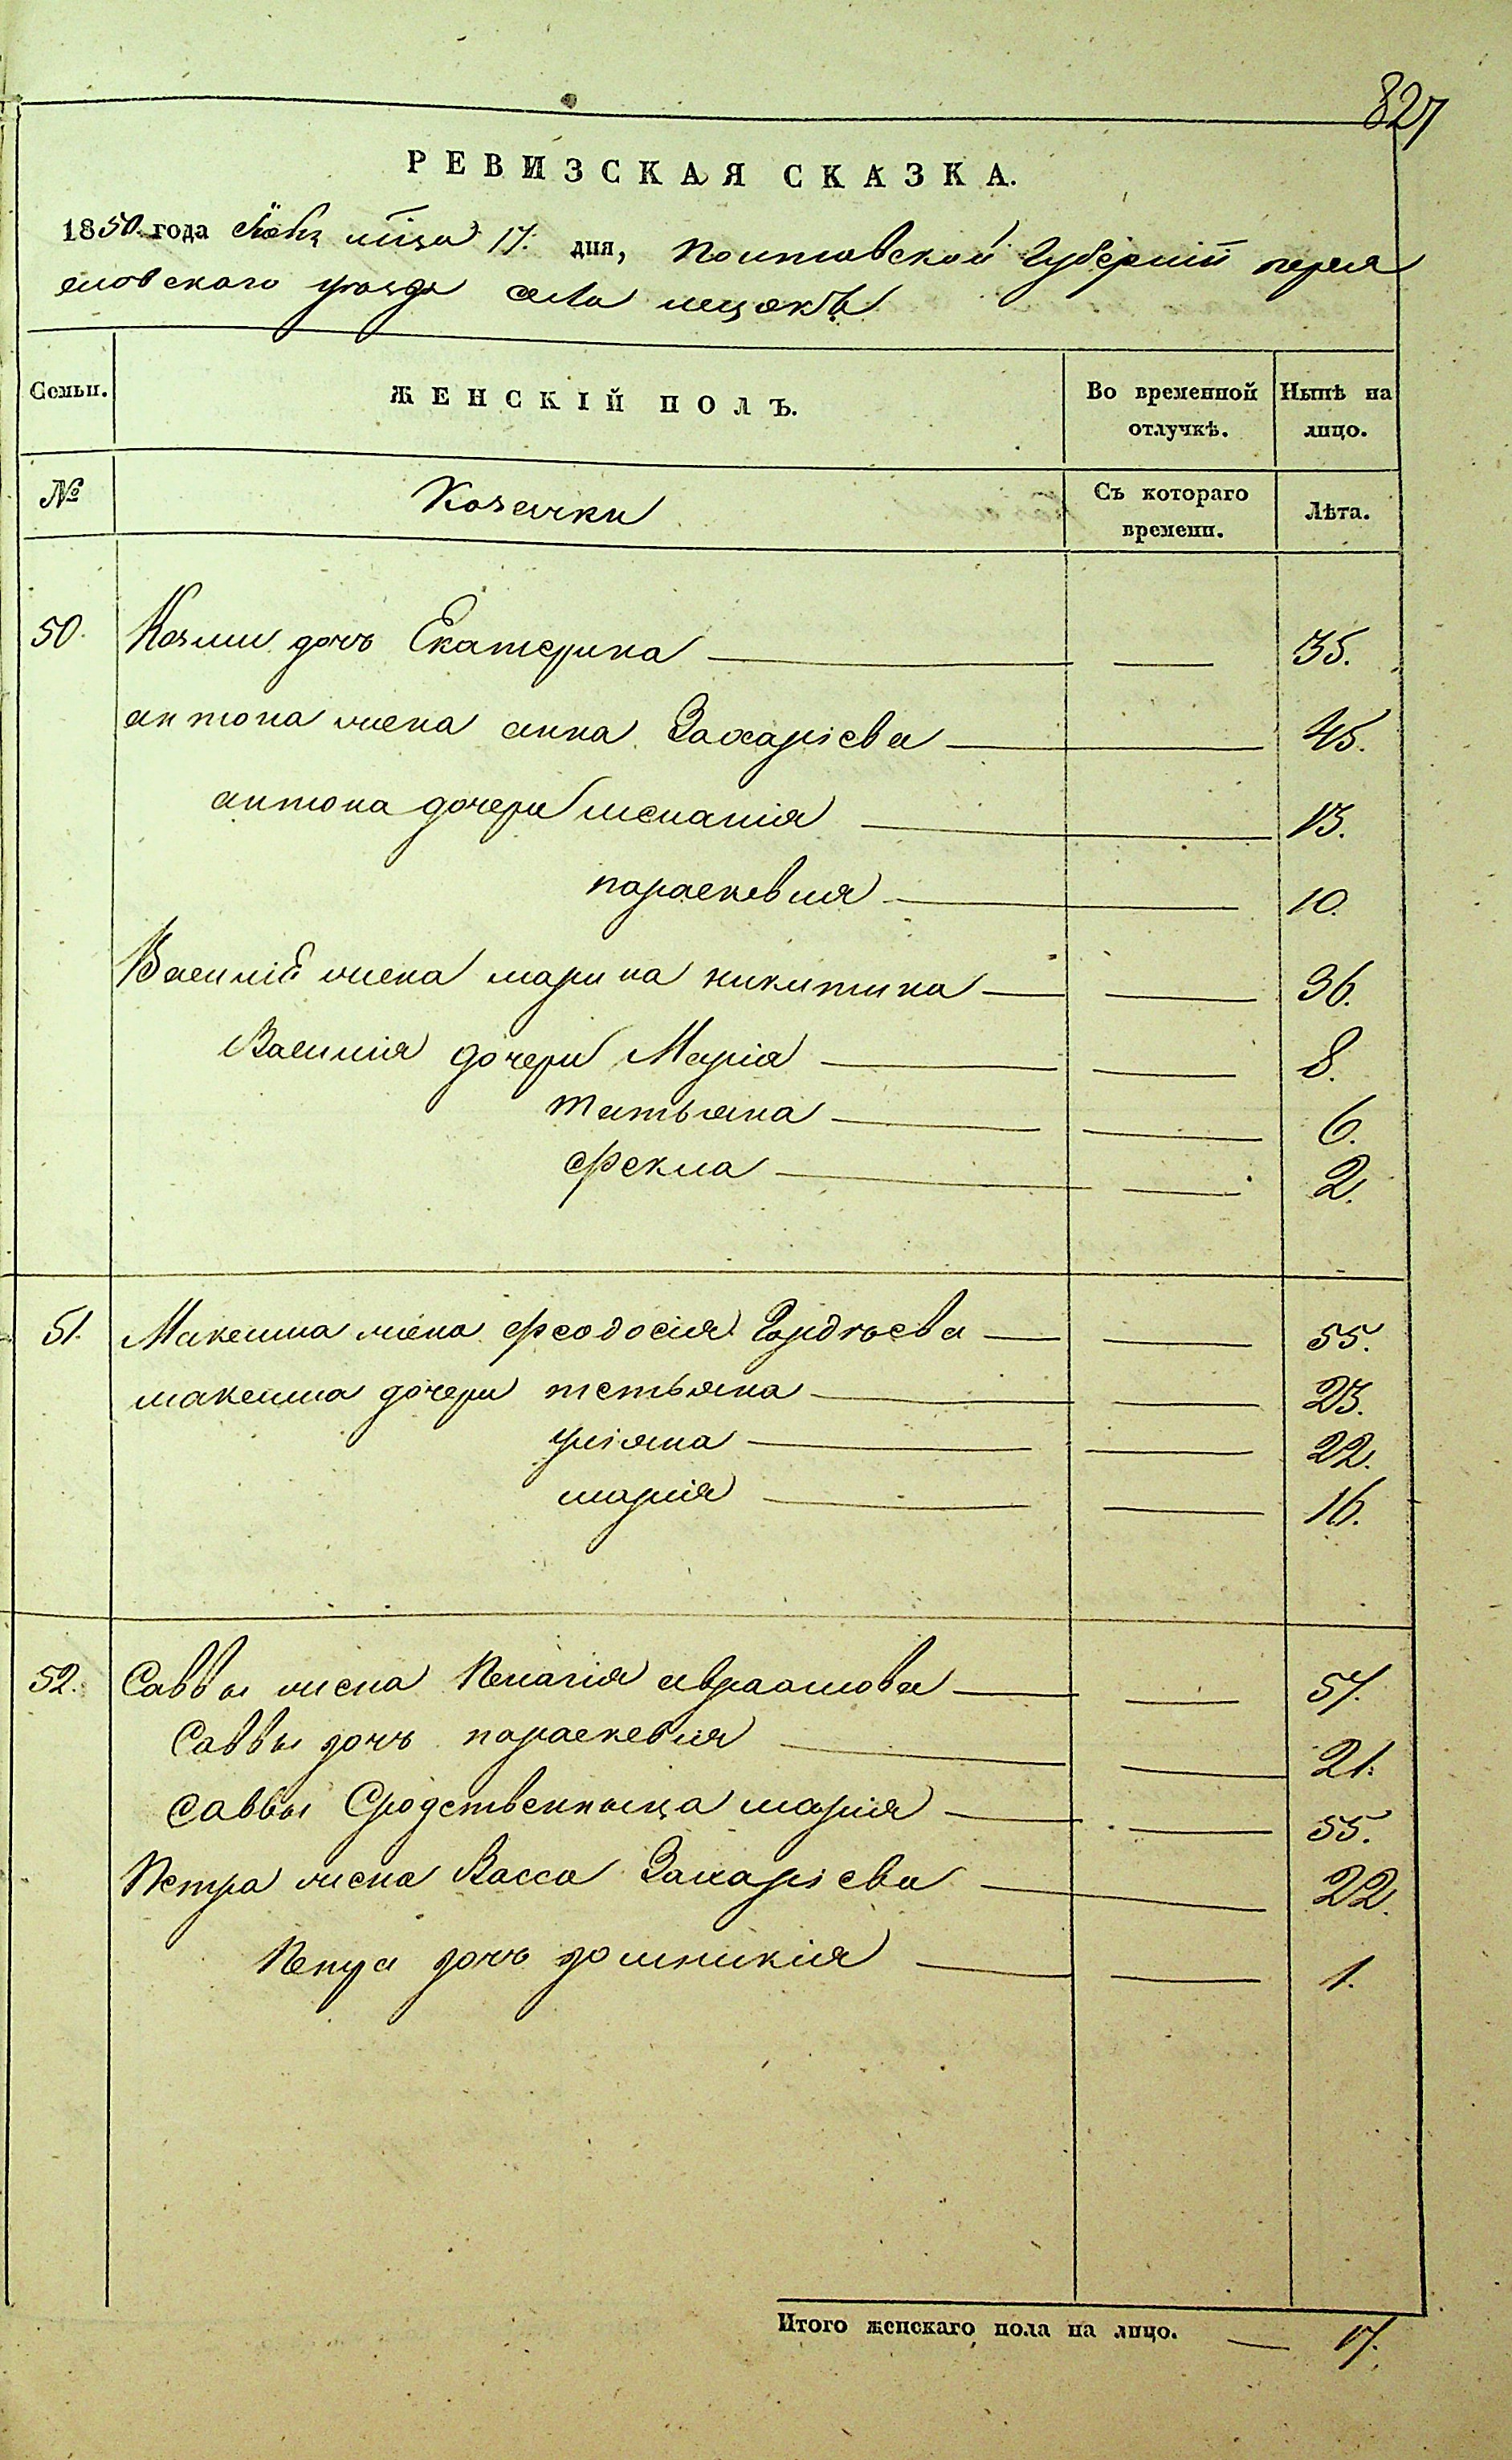 827
РЕВИЗСКАЯ СКАЗКА.
1850 года мца 17. дня, Полтавской Губерніи перея
словского уезда села
Семьи. ЖЕНСКІЙ ПОЛЪ. Во временной отлучкѣ. Нынѣ на лицо.
№ Козачки Съ котораго времени. Лѣта.
50. Козми дочь Екатерина 35.
антона жена анна Захаріева 45.
антона дочери меланія 13.
параскевия 10.
Василій жена марина никитина 36.
Василия дочери Марія 8.
татьяна 6.
Фекла 2.
51. Максима жена феодосия Гордѣева 55.
максима дочери тетьяна 23.
уліяна 22.
марія 16.
52. Саввы жена Пелагія авраамова 57.
Саввы дочь параскевия 21.
Саввы Сродственныца марія 55.
Петра жена Васса Захаріева 22.
Петра дочь домникія 1.
Итого женскаго пола на лицо. 17.